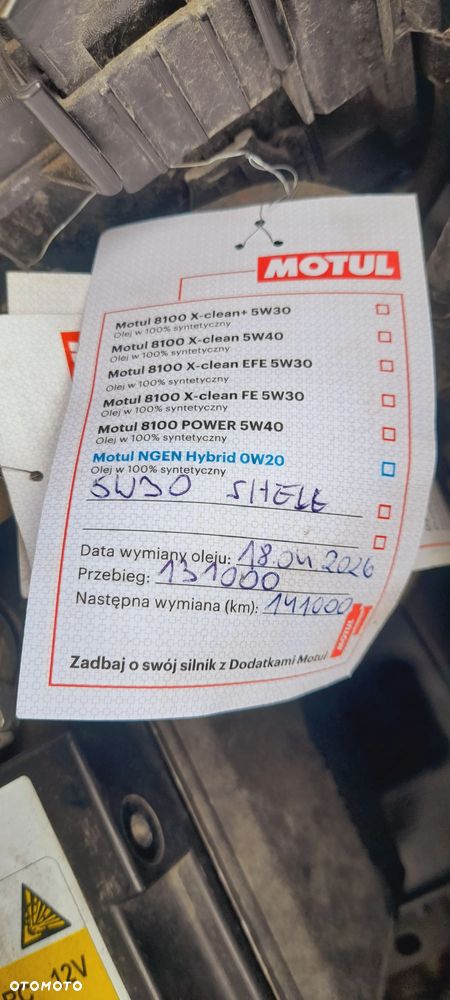 MOTUL
Motul 8100 X-clean+ 5W30
Olej w 100% syntetyczny
Motul 8100 X-clean 5W40
Olej w 100% syntetyczny
Motul 8100 X-clean EFE 5W30
Olej w 100% syntetyczny
Motul 8100 X-clean FE 5W30
Olej w 100% syntetyczny
Motul 8100 POWER 5W40
Olej w 100% syntetyczny
Motul NGEN Hybrid 0W20
Olej w 100% syntetyczny
5W30 SHELL
Data wymiany oleju: 18.04 2026
Przebieg: 131000
Następna wymiana (km): 141000
MOTUL
Zadbaj o swój silnik z Dodatkami Motul
12V
OTOMOTO